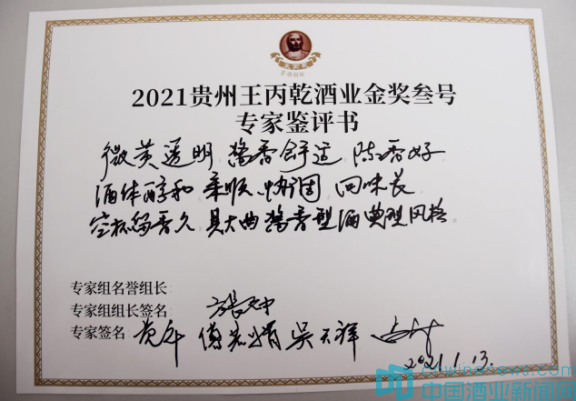 2021贵州王丙乾酒业金奖叁号
专家鉴评书
微黄透明 酱香舒适 陈香好
酒体醇和 柔顺 协调 回味长
空杯留香久 具大曲酱香型酒典型风格
专家组名誉组长
专家组组长签名:
专家签名: 吴天祥
2021.1.13.
cnwinenews.com
中国酒业新闻网